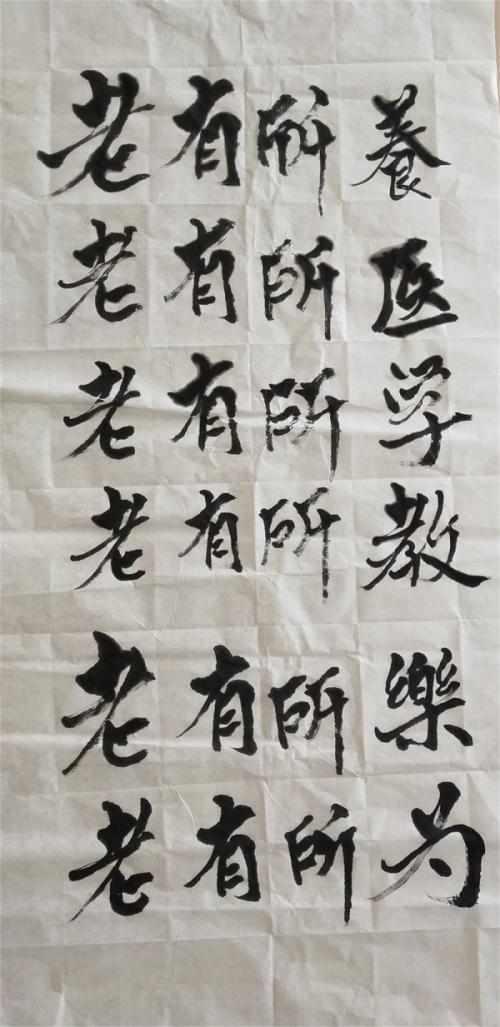 老有所養
老有所医
老有所学
老有所教
老有所樂
老有所为